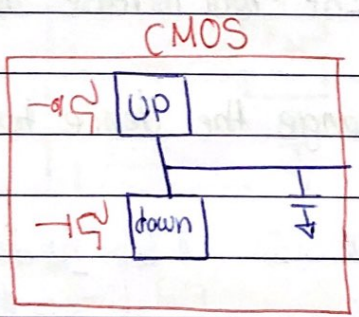 CMOS
UP
down